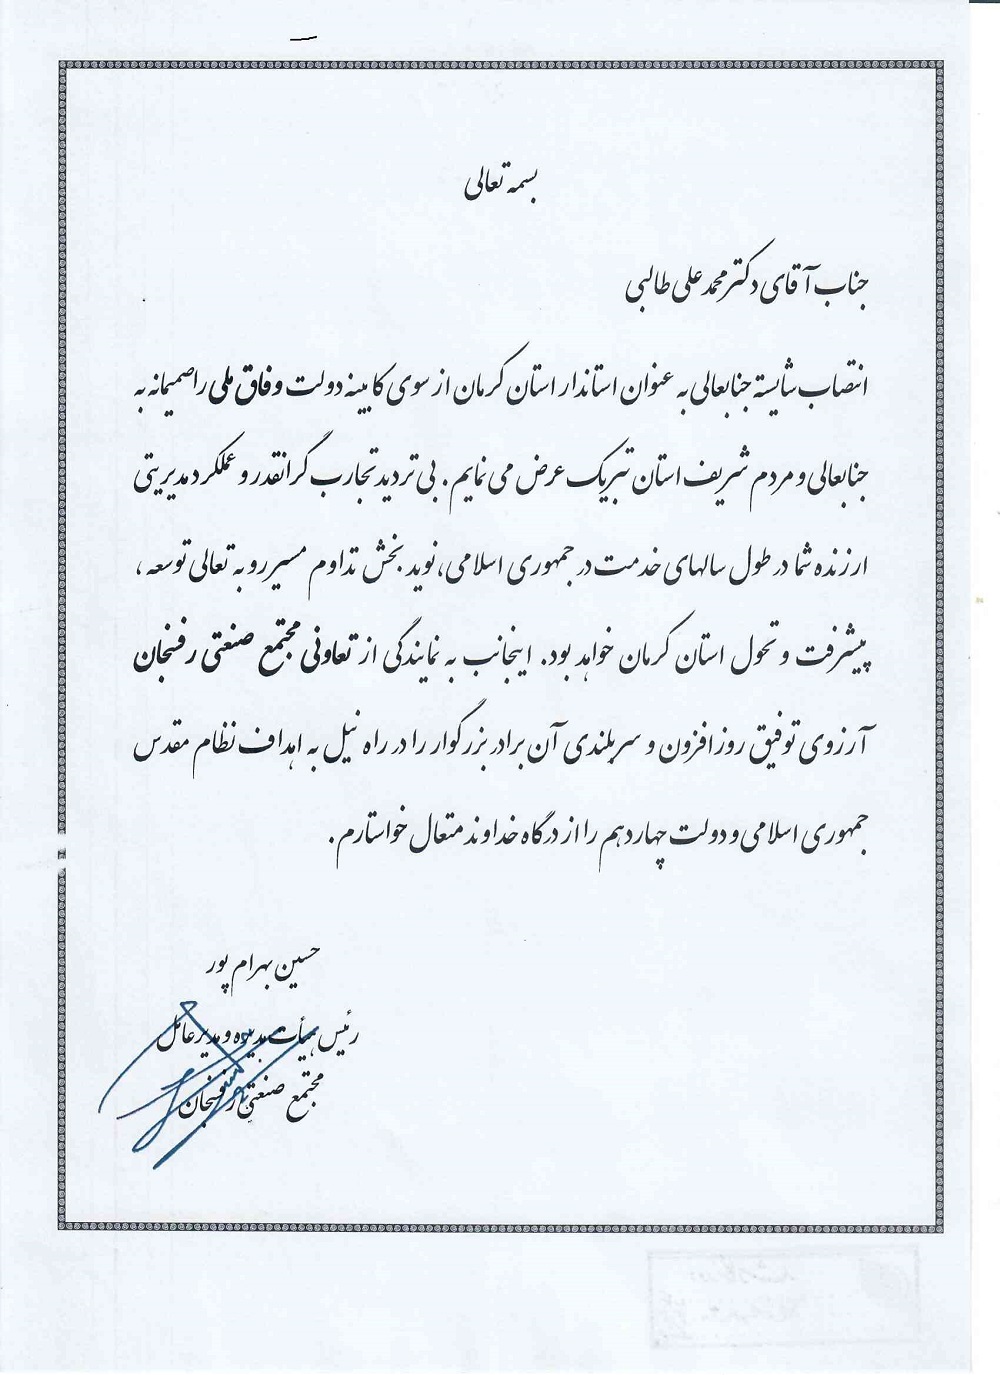 بسمه تعالی
جناب آقای دکتر محمد علی طالبی
انتصاب شایسته جنابعالی به عنوان استاندار استان کرمان از سوی کابینه دولت وفاق ملی را صمیمانه به
جنابعالی و مردم شریف استان تبریک عرض می نمایم. بی تردید تجارب گرانقدر و عملکرد مدیریتی
ارزنده شما در طول سالهای خدمت در جمهوری اسلامی، نوید بخش تداوم مسیر رو به تعالی توسعه،
پیشرفت و تحول استان کرمان خواهد بود. اینجانب به نمایندگی از تعاونی مجتمع صنعتی رفسنجان
آرزوی توفیق روز افزون و سربلندی آن برادر بزرگوار را در راه نیل به اهداف نظام مقدس
جمهوری اسلامی و دولت چهاردهم را از درگاه خداوند متعال خواستارم.
حسین بهرام پور
رئیس هیأت مدیره و مدیر عامل
مجتمع صنعتی رفسنجان